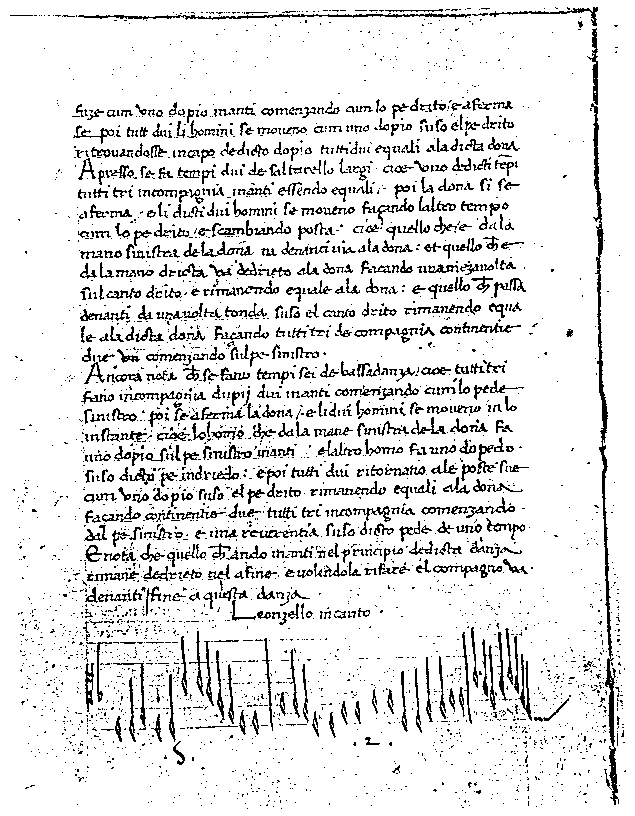 fuze cum uno dopio inanti comenzando cum lo pe drito / e aferma
se poi tutt dui li homini se moveno cum uno dopio suso el pe drito
ritrovandosse in capo de dicto dopio tutti dui equali ala dicta dona
Apresso se fa tempi dui de saltarello largi cioe uno de dicti tẽpi
tutti tri in compagnia inanti essendo equali. poi la dona si se
aferma. e li dicti dui homini se moveno façando laltro tempo
cum lo pe drito e scambiando posta. cioe quello che e dala
mano sinistra de la dona va denanci via ala dona: et quello chẽ e
dala mano dricta va dedrieto ala dona façando una meza volta
sul canto drito. e rimanendo equale ala dona: e quello chẽ passa
denanti da una volta tonda suso el canto drito rimanendo equa
le ala dicta dona façando tutti tri de compagnia continentie
due comenzando sul pe sinistro.
Ancora nota chẽ se fano tempi sei de bassadanza cioe tutti tri
fano in compagnia dupij dui inanti comenzando cum lo pede
sinistro. poi se aferma la dona / e li dui homini se moveno in lo
instante. cioe lo homo che da la mane sinistra de la dona fa
uno dopio sul pe sinistro inanti e laltro homo fa uno dopio
suso dicto pe indriedo. e poi tutti dui ritornano ale poste sue
cum uno dopio suso el pe drito rimanendo equali ala dona
façando continentie due tutti tri in compagnia comenzando
dal pe sinistro. e una reverentia suso dicto pede de uno tempo
E nota che quello chẽ ando inanti nel principio de dicta danza
rimane dedrieto nel afine. e volendola rifare el compagno va
denanti / fine a questa danza
Leonzello in canto.
.5. .2.